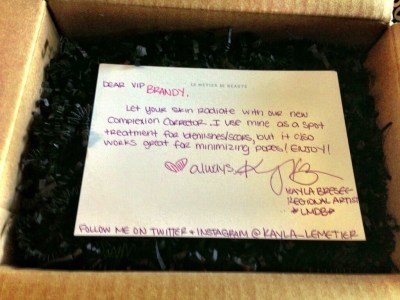 LE METIER DE BEAUTE
DEAR VIP BRANDY,
Let your skin radiate with our new
complexion corrector. I use mine as a spot
treatment for blemishes/scars, but it also
works great for minimizing pores! ENJOY!
always,
KAYLA BRESEE
REGIONAL ARTIST
LMDB
FOLLOW ME ON TWITTER + INSTAGRAM @KAYLA_LEMETIER